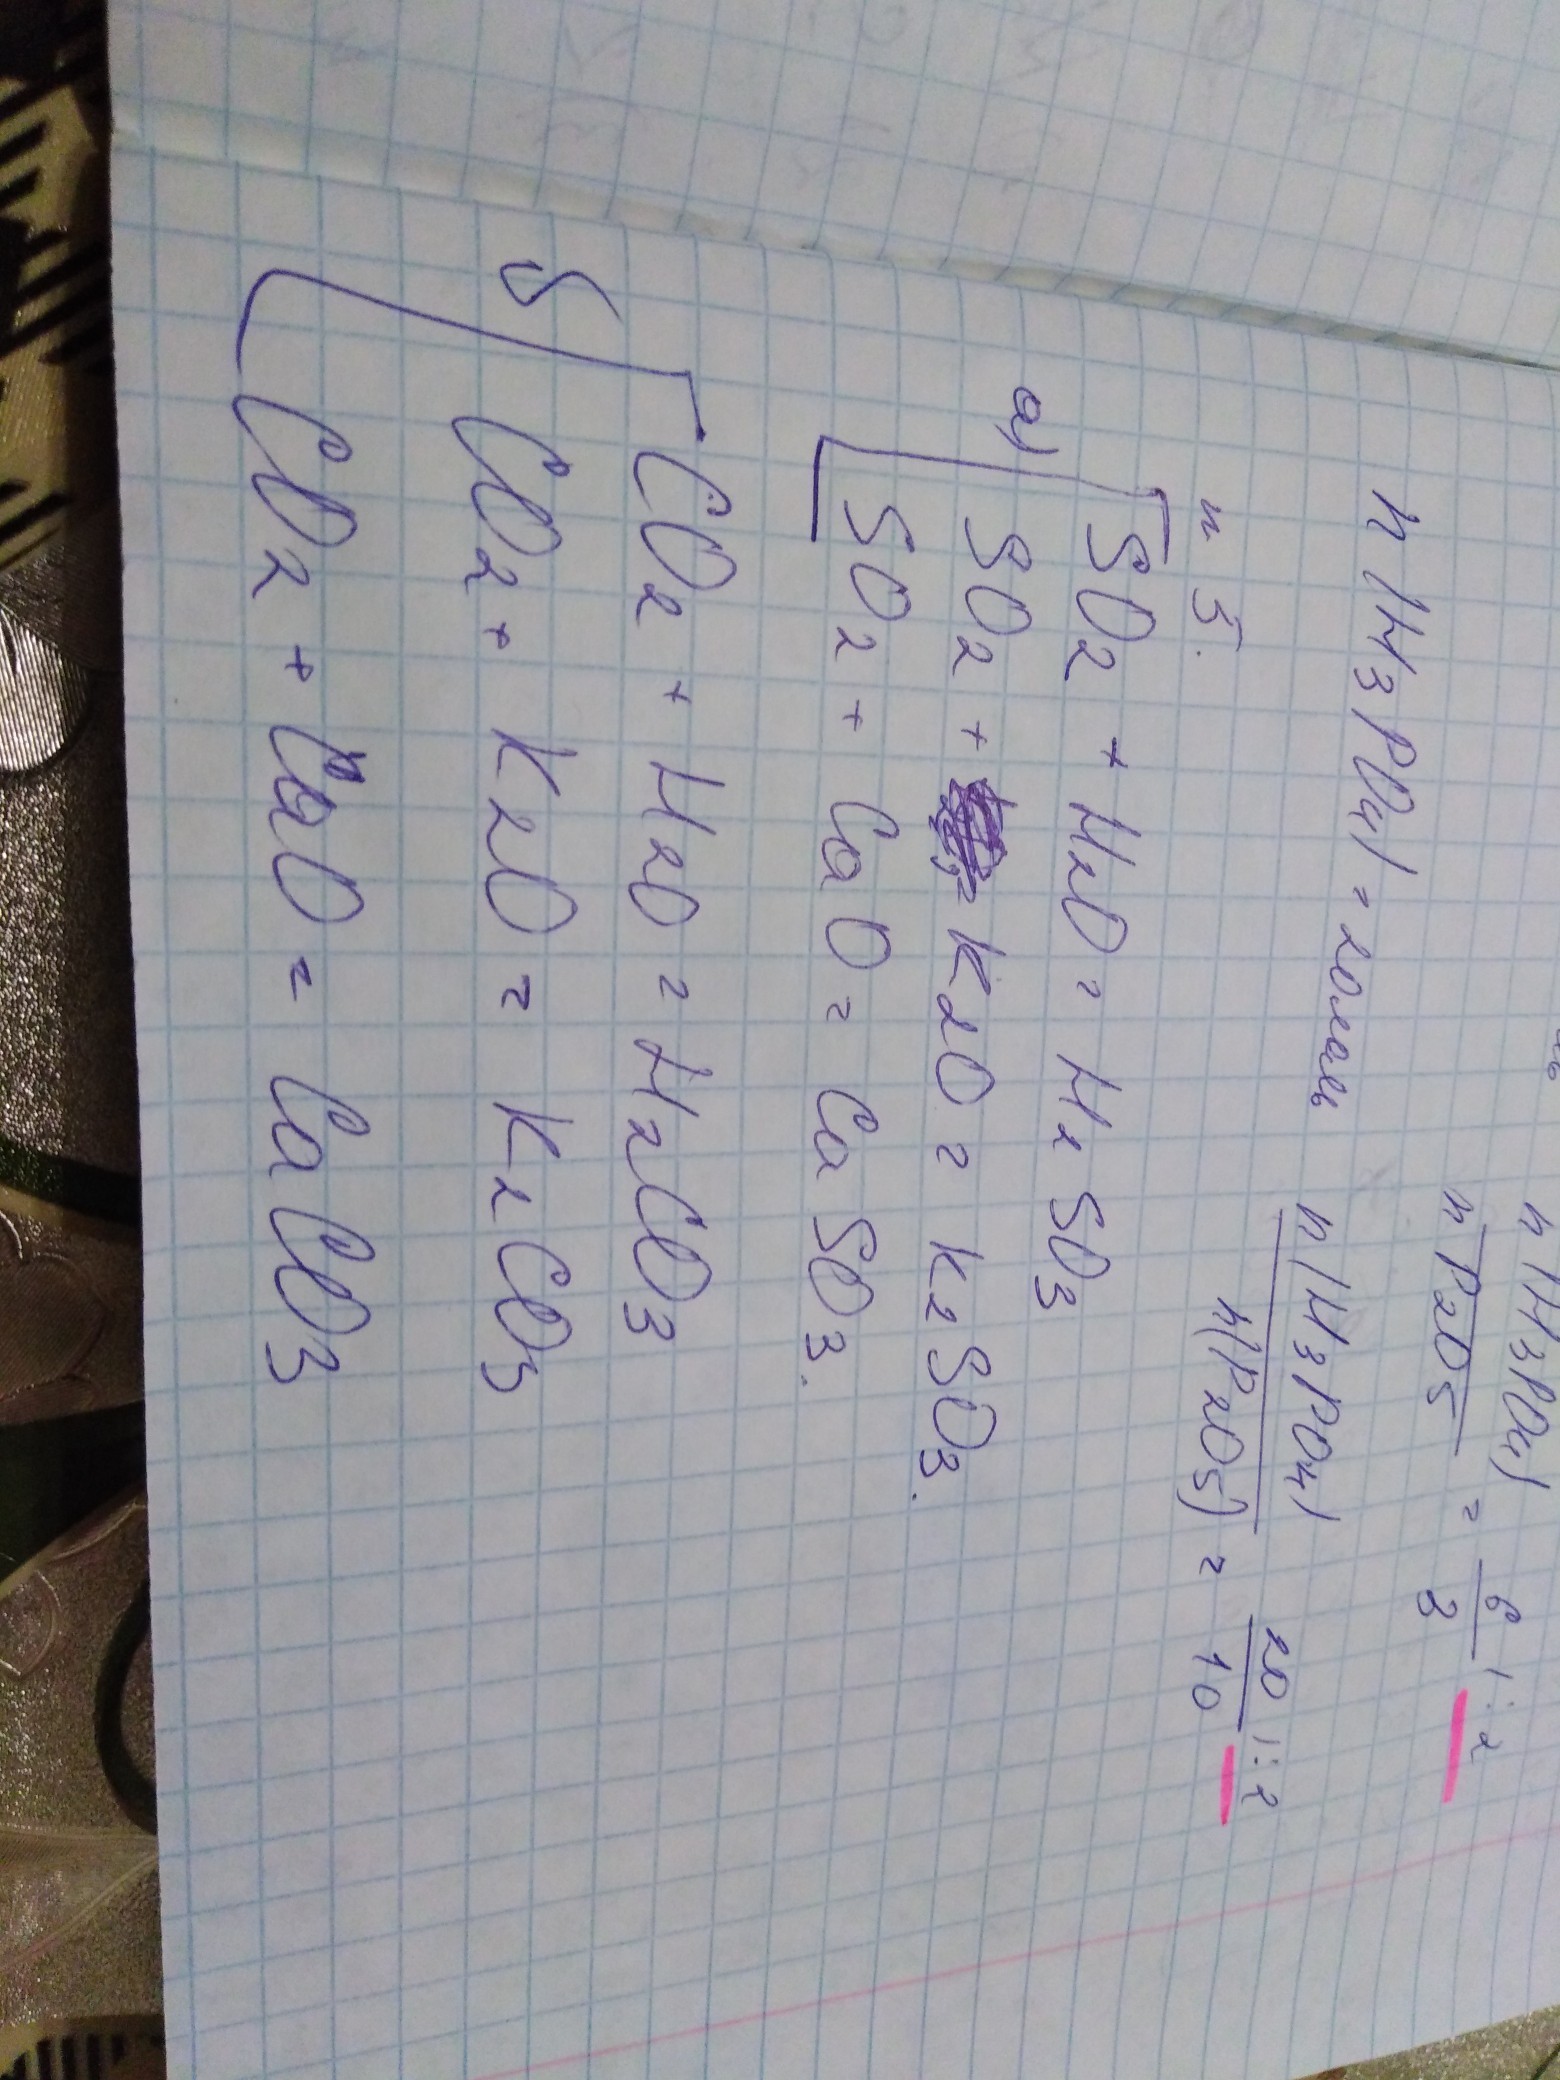 n (H3PO4)
n P2O5 = 6/3 1:2
n (H3PO4) = 20 моль
n (H3PO4)
n (P2O5) = 20/10 1:2
n 5.
а) SO2 + H2O = H2SO3
SO2 + K2O = K2SO3.
SO2 + CaO = CaSO3.
б CO2 + H2O = H2CO3
CO2 + K2O = K2CO3
CO2 + CaO = CaCO3